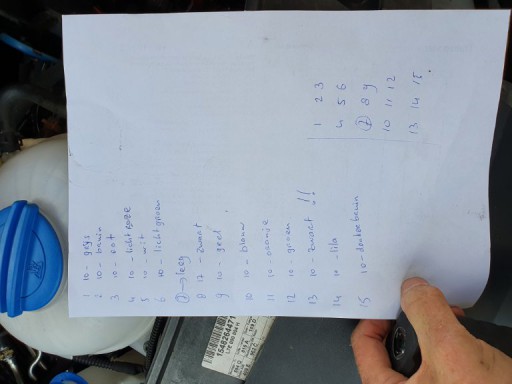 1 10 - grijs
2 10 - bruin
3 10 - rood
4 10 - licht roze
5 10 - wit
6 10 - licht groen
7 → leeg
8 12 - zwart
9 10 - geel
10 10 - blauw
11 10 - oranje
12 10 - groen
13 10 - zwart !!
14 10 - lila
15 10 - donker bruin
1 2 3
4 5 6
7 8 9
10 11 12
13 14 15